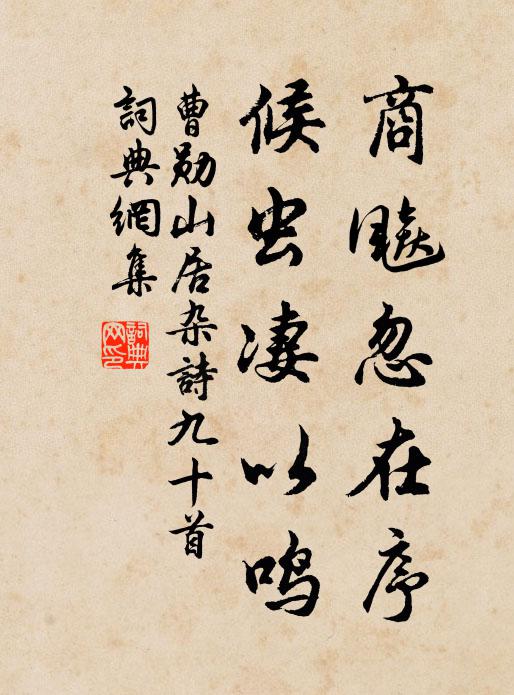 商飚忽在序
候虫凄以鸣
曹勋山居杂詩九十首
詞典網集
詞典網印